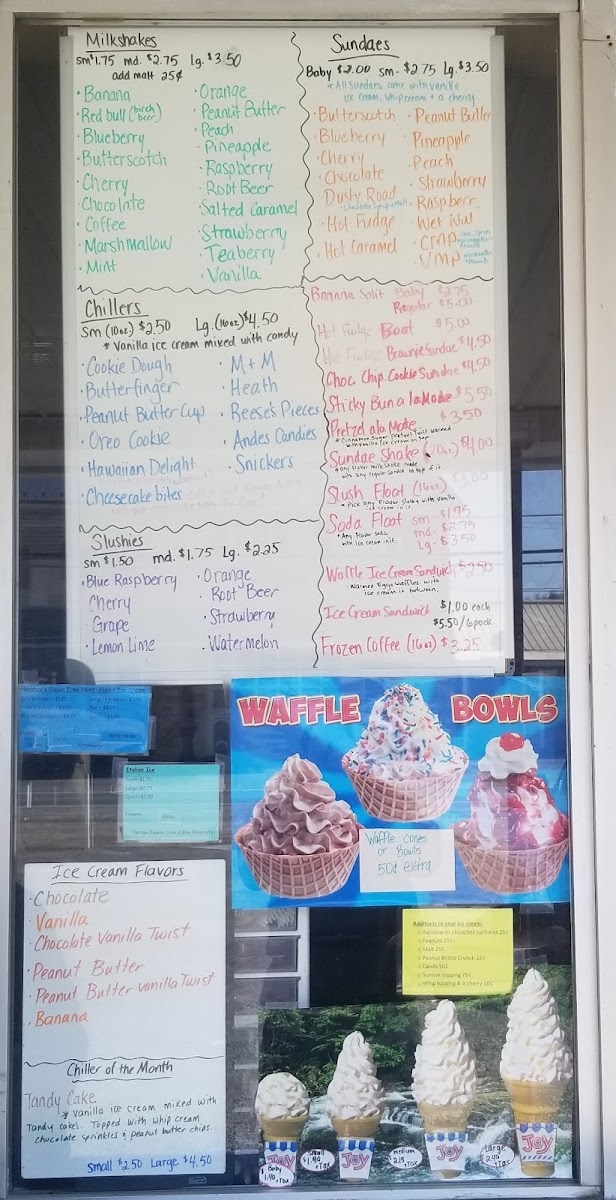 Milkshakes
sm $1.75 md. $2.75 Lg. $3.50
add malt 25¢
· Banana
· Red bull (birch beer)
· Blueberry
· Butterscotch
· Cherry
· Chocolate
· Coffee
· Marshmallow
· Mint
· Orange
· Peanut Butter
· Peach
· Pineapple
· Raspberry
· Root Beer
· Salted Caramel
· Strawberry
· Teaberry
· Vanilla
Sundaes
Baby $2.00 sm- $2.75 Lg. $3.50
* All Sundaes come with vanilla
ice cream, whipcream + a cherry
· Butterscotch
· Blueberry
· Cherry
· Chocolate
Dusty Road
- Chocolate Syrup + Malt
· Hot Fudge
· Hot Caramel
· Peanut Butter
· Pineapple
· Peach
· Strawberry
· Raspberr
· Wet Nut
· CMP
· VMP
Chillers
sm (10oz) $2.50 Lg. (16oz) $4.50
* Vanilla ice cream mixed with candy
· Cookie Dough
· Butterfinger
· Peanut Butter Cup
· Oreo Cookie
· Hawaiian Delight
· Cheesecake bites
· M + M
· Heath
· Reese's Pieces
· Andes Candies
· Snickers
Banana Split Baby $2.75
Regular $5.00
Hot Fudge Boat $5.00
Hot Fudge Brownie Sundae $4.50
Choc. Chip. Cookie Sundae $4.50
Sticky Bun a la Mode $5.50
Pretzel ala Mode $3.50
* Cinnamon Sugar Pretzel Twist warmed
with vanilla ice cream on top
Sundae Shake (20oz) $4.00
* Any flavor milkshake made
with any regular sundae on top of it
Slush Float (16oz) $3.00
* Pick any flavor slushy with vanilla
ice cream in it.
Soda Float sm. $1.75
md. $2.75
Lg. $3.50
* Any flavor soda
with ice cream in it.
Waffle Ice Cream Sandwich $2.50
- Warmed Eggo waffles with
ice cream in between.
Ice Cream Sandwich $1.00 each
$5.50/6pack
Frozen Coffee (16oz) $3.25
Slushies
sm $1.50 md. $1.75 Lg. $2.25
· Blue Raspberry
Cherry
· Grape
· Lemon Lime
· Orange
· Root Beer
· Strawberry
· Watermelon
WAFFLE BOWLS
Waffle cones
or Bowls
50¢ extra
Italian Ice
Ice Cream Flavors
· Chocolate
· Vanilla
· Chocolate Vanilla Twist
· Peanut Butter
· Peanut Butter vanilla Twist
· Banana
Chiller of the Month
Tandy Cake
* Vanilla ice cream mixed with
Tandy cakes. Topped with whip cream
chocolate sprinkles & peanut butter chips.
Small $2.50 Large $4.50
Additions to your ice cream:
o Rainbow or chocolate sprinkles 25¢
o Peanuts 25¢
o Malt 25¢
o Peanut Brittle Crunch 25¢
o Candy 50¢
o Sundae topping 75¢
o Whip topping & a cherry 50¢
JOY
JOY
JOY
JOY
Baby
1.40 + Tax
Small
$1.90
+ Tax
medium
$2.15 + Tax
Large
$2.40
+ Tax